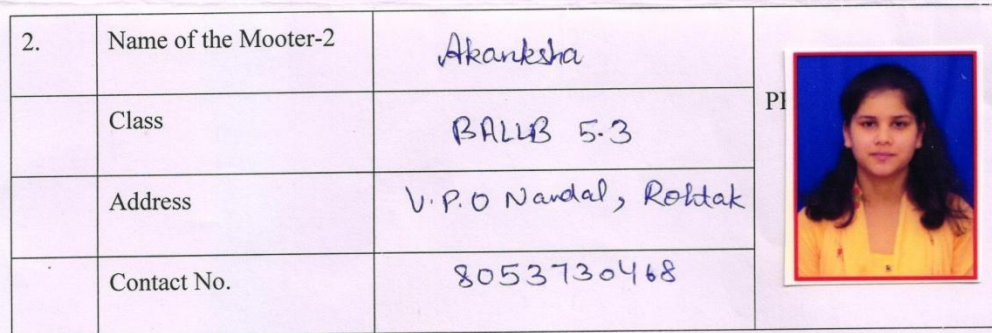 2. Name of the Mooter-2 Akanksha
Class BALLB 5.3
Address V.P.O Nandal, Rohtak
Contact No. 8053730468